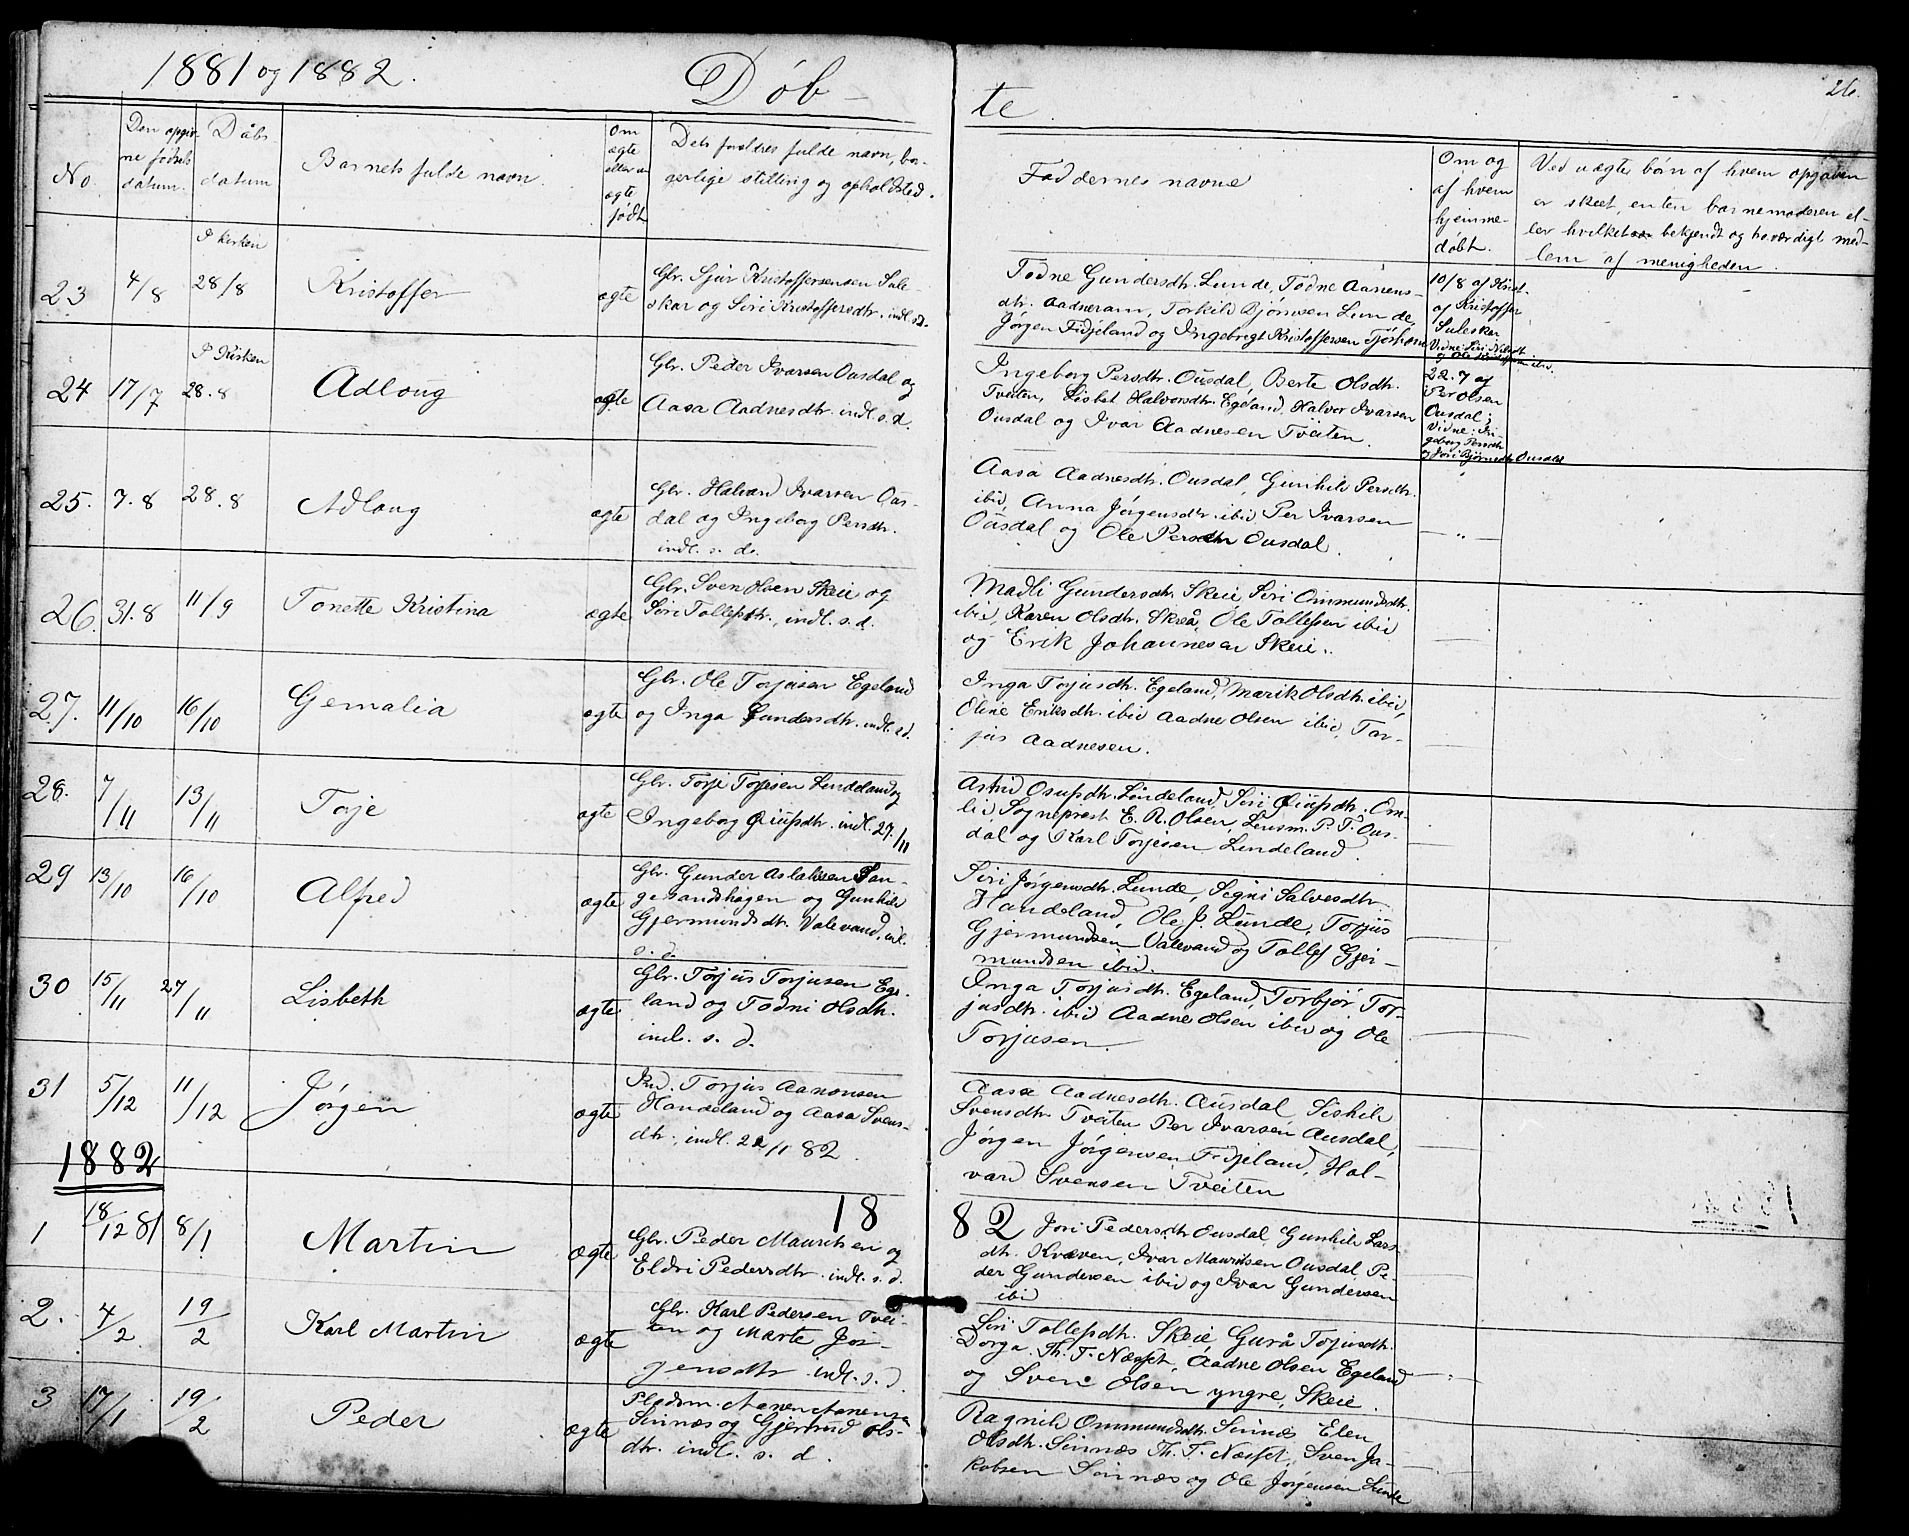 1881 og 1882. Døb-
te. 26.
No.
Den opgiv-
ne fødsels
datum.
Dåbs
datum
Barnets fulde navn.
Om
ægte
eller u-
ægte
født
Dets forældres fulde navn, bor-
gerlige stilling og opholdsted.
Faddernes navne
Om og
af hvem
hjemme-
døbt.
Ved uægte børn af hvem opgaven
er skeet, enten barnemoderen el-
ler hvilket bekjendt og troværdigt med-
lem af menigheden.
23
4/8
I kirken
28/8
Kristoffer
ægte
Gbr. Sjur Kristoffersensen Sule-
skar og Siri Kristoffersdtr. indl. s.d.
Todne Gundersdtr. Lunde, Todne Aanens-
dtr. Aadneram, Torkild Bjørnsen Lunde,
Jørgen Fidjeland og Ingebregt Kristoffersen Tjørhom
10/8 af Krist-
af Kristoffer
Suleskar
Vidne Siri Nilsdt
og Ole Kristoffersen ibid.
24
17/7
I Kirken
28.8
Adlong
ægte
Gbr. Peder Ivarsen Ousdal og
Aasa Aadnesdtr. indl. s.d.
Ingeborg Persdtr. Ousdal, Berte Olsdtr.
Tveiten, Lisbet Halvorsdtr. Egeland, Halvor Ivarsen
Ousdal og Ivar Aadnesen Tveiten.
22.7 af
Per Olsen
Ousdal;
Vidne: In-
geborg Persdtr
og Jori Bjørnsdtr Ousdal
25.
7.8
28.8
Adlong
ægte
Gbr. Halvard Ivarsen Ous-
dal og Ingeborg Persdtr.
indl. s. d.
Aasa Aadnesdtr. Ousdal, Gunhild Persdtr.
ibid, Anna Jørgensdtr. ibid Per Ivarsen
Ousdal og Ole Persen Ousdal.
— „ —
26.
31.8
11/9
Tonette Kristina
ægte
Gbr. Sven Olsen Skeie og
Siri Tollefsdtr., indl. s.d.
Madli Gundersdtr. Skeie, Siri Ommundsdtr.
ibid, Karen Olsdtr. Skreå, Ole Tollefsen ibid
og Erik Johannesen Skeie.
27.
11/10
16/10
Gemalia
ægte
Gbr. Ole Torjusen Egeland
og Inga Gundersdtr. indl. s.d.
Inga Torjusdtr. Egeland, Marik Olsdtr. ibid,
Oline Eriksdtr. ibid Aadne Olsen ibid, Tor-
jus Aadnesen.
28.
7/11
13/11
Torje
ægte
Gbr. Torje Torjesen Lindeland og
Ingeborg Øiufsdtr. indl. 27/11
Astrid Osufsdtr. Lindeland, Siri Øiufsdtr. Om-
lid Sogneprest E. A. Olsen, Lensm. P. T. Ous-
dal og Karl Torjesen Lindeland.
29
13/10
16/10
Alfred
ægte
Gbr. Gunder Aslaksen San-
gesandshagen og Gunhild
Gjermundsdtr. Valevand, indl.
s. d.
Siri Jørgensdtr. Lunde, Segni Salvesdtr.
Handeland, Ole J. Lunde, Torjus
Gjermundsen Valevand og Tollef Gjer-
mundsen ibid.
30
15/11
27/11
Lisbeth
ægte
Gbr. Torjus Torjusen Ege-
land og Todni Olsdtr.
indl. s. d.
Inga Torjusdtr. Egeland, Torbjør Tor-
jusdtr. ibid Aadne Olsen ibid og Ole
Torjusen.
31
5/12
11/12
Jørgen
ægte
Ind. Torjus Aanonsen
Handeland og Aasa Svens-
dtr., indl. 22/1 82.
Aasa Aadnesdtr. Ausdal, Siskild
Svensdtr. Tveiten Per Ivarsen Ausdal,
Jørgen Jørgensen Fidjeland, Hal-
vard Svensen Tveiten
1882
18 82
1
18/12 81
8/1
Martin
ægte
Gbr. Peder Mauritsen og
Eldri Pedersdtr. indl. s. d.
Jori Pedersdtr. Ousdal, Gunhild Lars-
dtr. Kvæven, Ivar Mauritsen Ousdal, Pe-
der Gundersen ibid og Ivar Gundersen
ibid
2.
4/2
19/2
Karl Martin
ægte
Gbr. Karl Pedersen Tvei-
ten og Marte Jør-
gensdtr. indl. s. d.
Siri Tollefsdtr. Skeie, Gurå Torjusdtr.
Dorga. Th. T. Næsset, Aadne Olsen Egeland
og Sven Olsen yngre, Skeie.
3
17/1
19/2
Peder
ægte
Pladsm. Aanen Aanensen
Sinnæs og Gjertrud Ols-
dtr. indl. s. d.
Ragnild Ommundsdtr. Sinnæs Elen
Olsdtr. Sinnæs Th. T. Næsset, Sven Ja-
kobsen Sinnæs og Ole Jørgensen Lunde